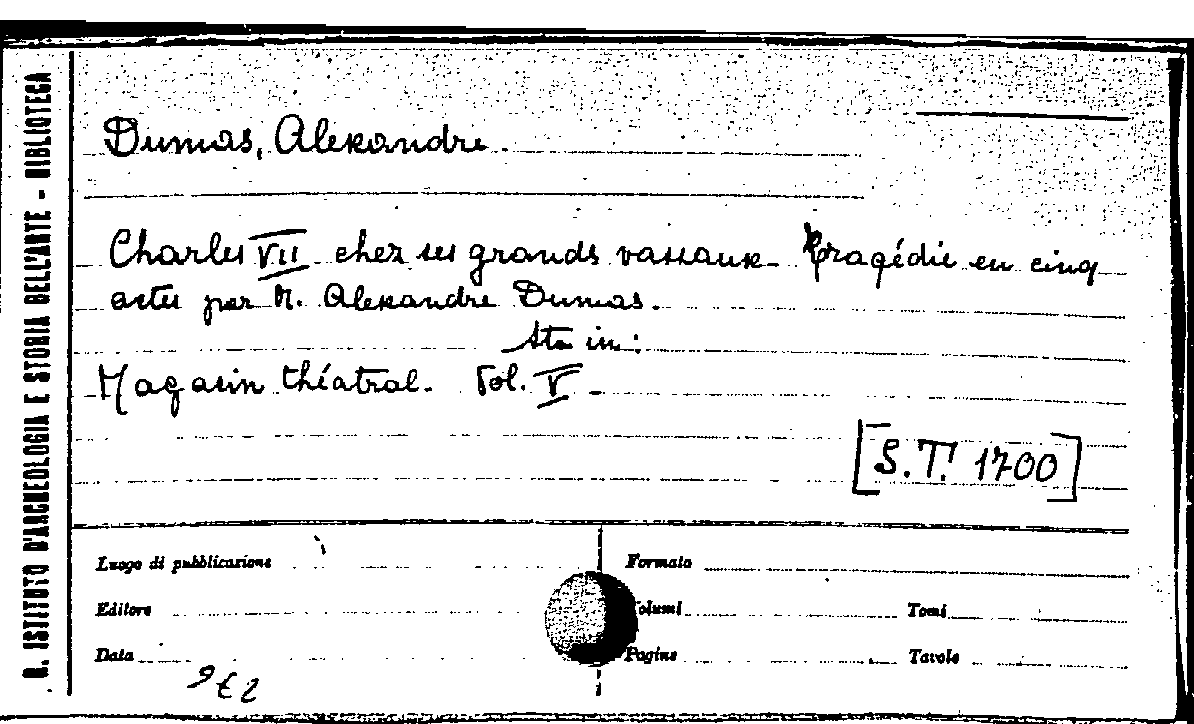 R. ISTITUTO D'ARCHEOLOGIA E STORIA DELL'ARTE - BIBLIOTECA
Dumas, Alexandre.
Charles VII chez ses grands vassaux. Tragédie en cinq
actes par M. Alexandre Dumas.
Sta in:
Magasin théatral. Vol. V.
[S.T. 1700]
Luogo di pubblicazione
Formato
Editore
Volumi
Tomi
Data
Pagine
Tavole